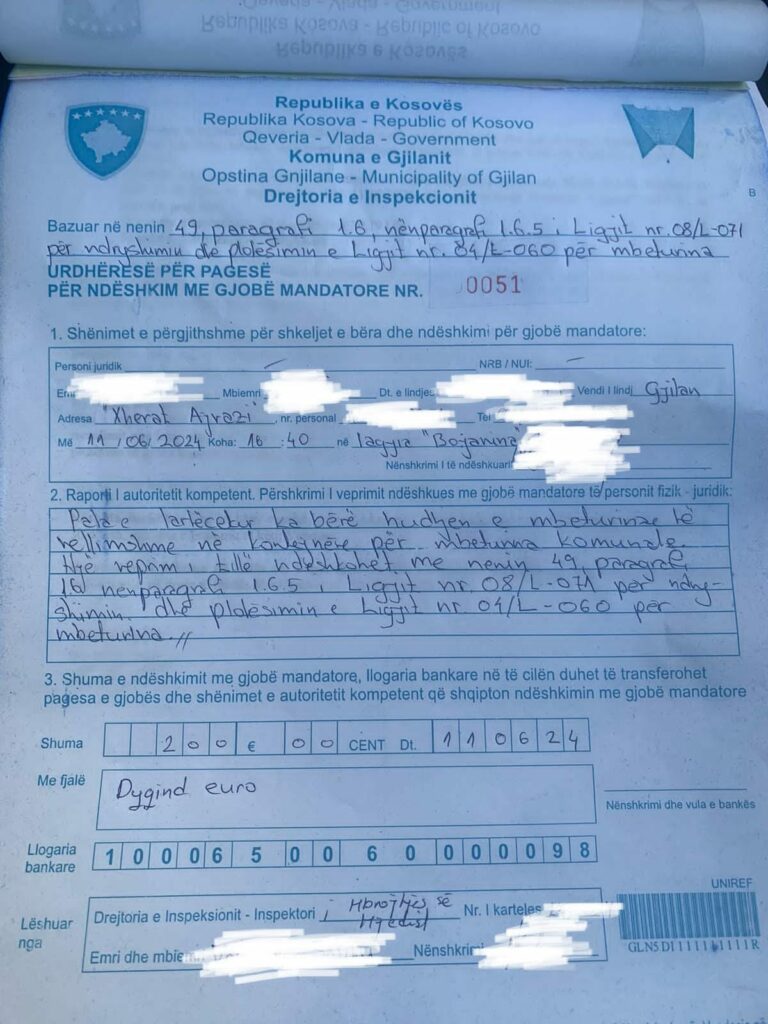 Qeveria - Vlada - Government
Republika Kosova - Republic of Kosovo
Republika e Kosovës
Republika e Kosovës
Republika Kosova - Republic of Kosovo
Qeveria - Vlada - Government
Komuna e Gjilanit
Opstina Gnjilane - Municipality of Gjilan
Drejtoria e Inspekcionit
B
Bazuar në nenin 49, paragrafi 1.6, nënparagrafi 1.6.5 i Ligjit nr. 08/L-071
për ndryshimin dhe plotësimin e Ligjit nr. 04/L-060 për mbeturina
URDHËRËSË PËR PAGESË
PËR NDËSHKIM ME GJOBË MANDATORE NR. 0051
1. Shënimet e përgjithshme për shkeljet e bëra dhe ndëshkimi për gjobë mandatore:
Personi juridik - NRB / NUI: -
Mbiemri Dt. e lindjes Vendi I lindj Gjilan
Adresa "Xherat Ajrazi", nr. personal Tel
Më 11/06/2024 Koha: 16:40 në lagjja "Bojanina"
Nënshkrimi I të ndëshkuari
2. Raporti I autoritetit kompetent. Përshkrimi I veprimit ndëshkues me gjobë mandatore të personit fizik - juridik:
Pala e lartëcekur ka bërë hudhjen e mbeturinave të
vëllimshme në kontejnerë për mbeturina komunale.
Një veprim i tillë ndëshkohet me nenin 49, paragrafi
1.6 nënparagrafi 1.6.5 i Ligjit nr. 08/L-071 për ndry-
shimin dhe plotësimin e Ligjit nr. 04/L-060 për
mbeturina.//
3. Shuma e ndëshkimit me gjobë mandatore, llogaria bankare në të cilën duhet të transferohet
pagesa e gjobës dhe shënimet e autoritetit kompetent që shqipton ndëshkimin me gjobë mandatore
Shuma 200 € 00 CENT Dt. 110624
Me fjalë Dygind euro
Nënshkrimi dhe vula e bankës
Llogaria
bankare 1000650060000098
UNIREF
Lëshuar
nga
Drejtoria e Inspeksionit - Inspektori i Mbrojtjes së Nr. I karteles
Mjedisit
Emri dhe mbiem Nënshkrimi
GLN5DI1111111111R